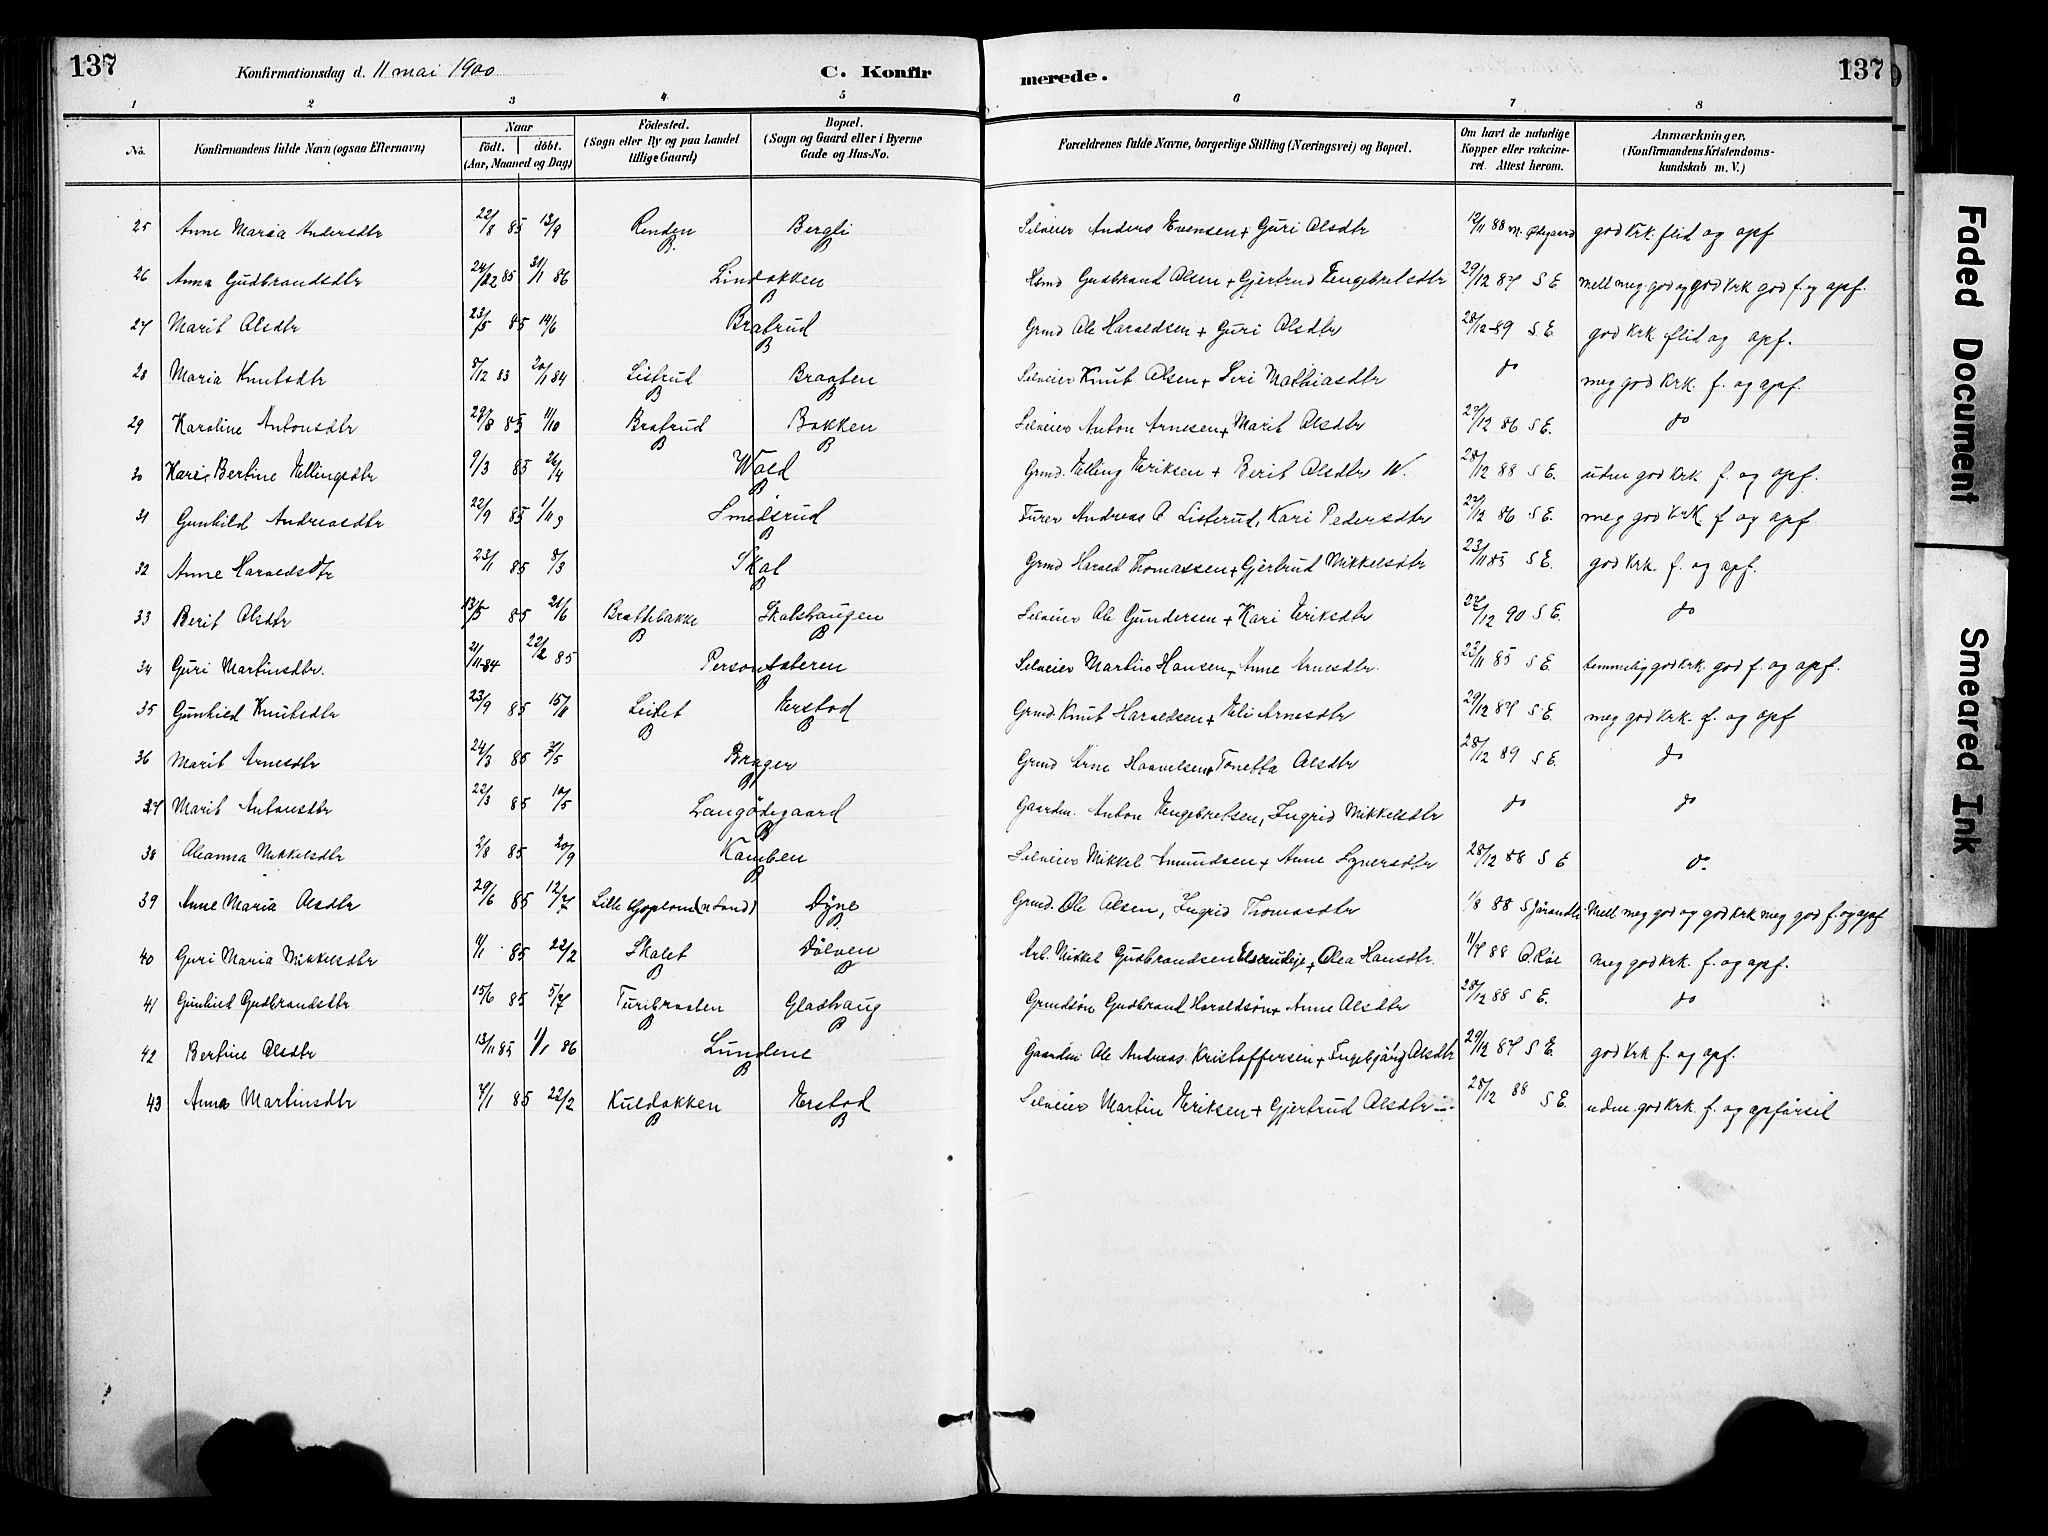 137 Konfirmationsdag d. 11 mai 1900 C. Konfir merede. 137
1 2 3 4 5 6 7 8
No. Konfirmandens fulde Navn (ogsaa Efternavn) Naar født. døbt. (Aar, Maaned og Dag) Fødested. (Sogn eller By og paa Landet tillige Gaard) Bopæl. (Sogn og Gaard eller i Byerne Gade og Hus-No. Forældrenes fulde Navne, borgerlige Stilling (Næringsvei) og Bopæl. Om havt de naturlige Kopper eller vakcineret. Attest herom. Anmærkninger. (Konfirmandens Kristendomskundskab m. V.)
25 Anne Maria Andersdtr 22/8 85 13/9 Renden B. Bergli Selveier Anders Evensen + Guri Olsdtr 12/11 88 M. Ødegaard god Krk. flid og opf
26 Anna Gudbrandsdtr 24/12 85 31/1 86 Lindokken B Hsmd Gudbrand Olsen + Gjertrud Engebretsdtr 29/12 87 S E. mell meg. god og god Krk god f. og opf.
27 Marit Olsdtr 23/5 85 14/6 Bratrud B Grmd Ole Haraldsen + Guri Olsdtr 28/12 89 S E. god Krk flid og opf.
28 Maria Knutsdtr 8/12 83 20/1 84 Listrud B Braaten B Selveier Knut Olsen + Siri Mathiasdtr do meg god Krk. f. og opf.
29 Karoline Antonsdtr 28/8 85 11/10 Bratrud B Bakken B Selveier Anton Arnesen + Marit Olsdtr 27/12 86 S E. do
30 Kari Bertine Ellingsdtr 9/3 85 26/4 Wold B Grmd. Elling Eriksen + Berit Olsdtr W. 28/12 88 S E. uden god Krk f. og opf.
31 Gunhild Andreasdtr 22/9 85 1/11 Smedsrud B Andreas O Listerud, Kari Pedersdtr 27/12 86 S E. meg god Krk f og opf
32 Anne Haraldsdtr 23/1 85 8/3 Skol B Grmd Harald Thomassen + Gjertrud Mikkelsdtr 23/11 85 S E. god Krk. f. og opf.
33 Berit Olsdtr 13/5 85 21/6 Brattebakke B Skolshaugen B Selveier Ole Gundersen + Kari Eriksdtr 27/12 90 S E. do
34 Guri Martinsdtr. 21/11 84 22/2 85 B Selveier Martin Hansen + Anne Arnesdtr. 23/11 85 S E. temmelig god Krk. god f. og opf.
35 Gunhild Knutsdtr 23/9 85 15/11 Leidet B Erstad B Grmd. Knut Haraldsen + Eli Arnesdtr 29/12 87 S E. meg god Krk. f. og opf
36 Marit Arnesdtr 24/3 85 /5 Brager B Grmd Arne Haavelsen + Tonetta Olsdtr 28/12 89 S E. do
37 Marit Antonsdtr 22/3 85 10/5 Langødegaard B Gaardm. Anton Engebretsen, Ingrid Mikkelsdtr do do
38 Oleanna Mikkelsdtr 2/8 85 20/9 Kamben B Selveier Mikkel Amundsen + Anne Synersdtr 28/12 88 S E do.
39 Anne Maria Olsdtr 29/6 85 12/7 Lille (n Land) Dyne B Grmd. Ole Olsen, Ingrid Thomasdtr 1/8 88 Mell meg god og god Krk meg god f. og opf
40 Guri Maria Mikkelsdtr 11/1 85 22/2 Skalet B Dølven B Arb. Mikkel Gudbrandsen + Olea Hansdtr. 11/7 88 O. Roe meg god Krk. f. og opf.
41 Gunhild Gudbrandsdtr 15/6 85 5/7 Turibraaten B Gladhaug B Grmdsøn Gudbrand Haraldsøn + Anne Olsdtr 28/12 88 S E. do
42 Bertine Olsdtr 13/11 85 1/1 86 Lundene B Gaardm. Ole Andreas Kristoffersen + Ingebjørg Olsdtr 29/12 87 S E. god Krk f. og opf.
43 Anna Martinsdtr 4/1 85 22/2 Kuldokken B Erstad B Selveier Martin Eriksen + Gjertrud Olsdtr 28/12 88 S E. udm. god Krk. f. og opførsil
Faded Document
Smeared Ink